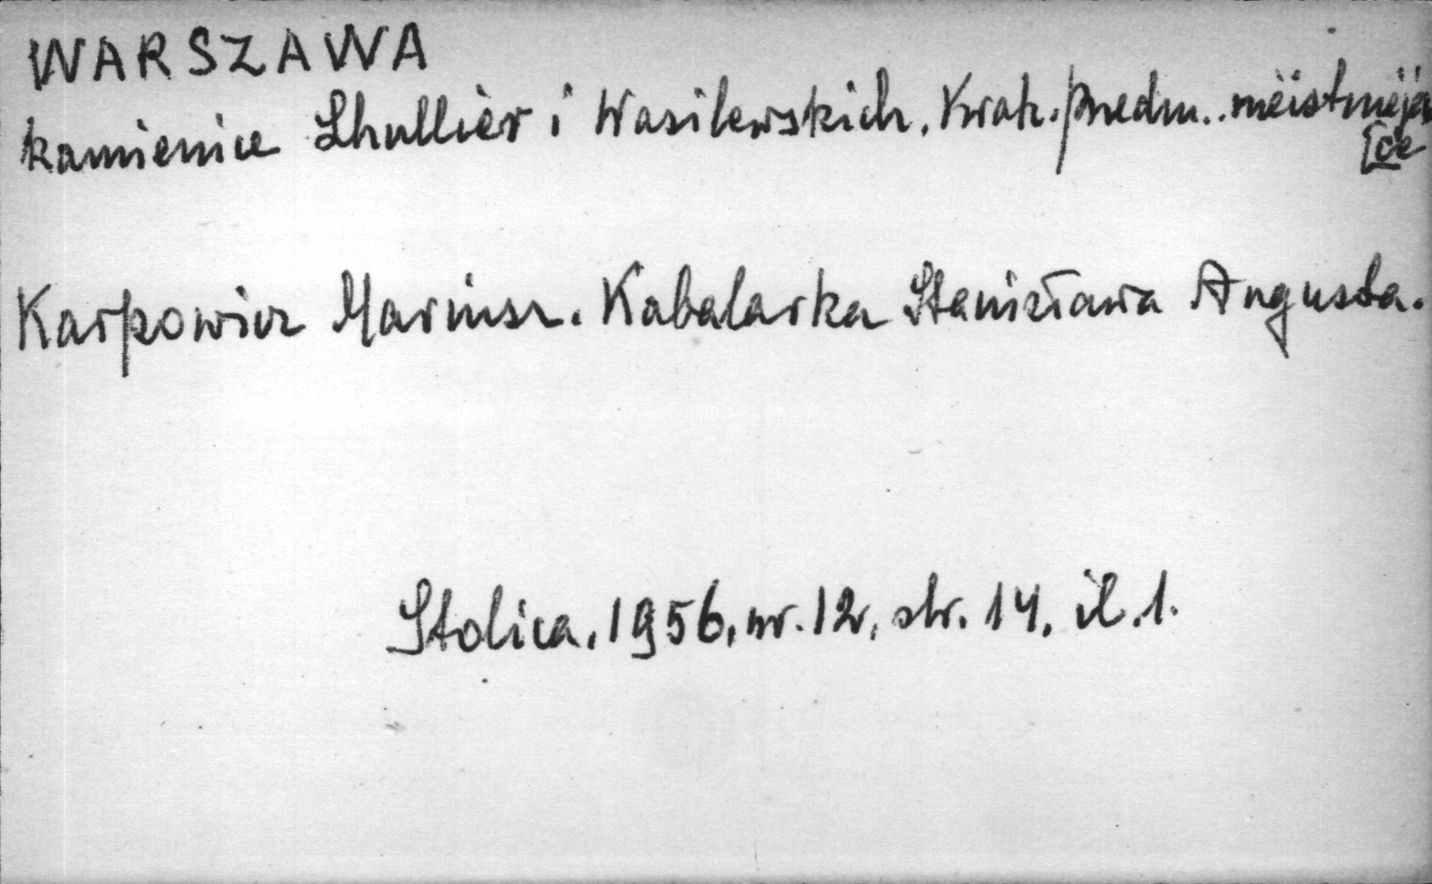 WARSZAWA
kamienice Lhullier i Wasilewskich. Krak. przedm.. nieistnieją
[ce
Karpowicz Mariusz. Kabalarka Stanisława Augusta.
Stolica. 1956, nr. 12, str. 14, il. 1.